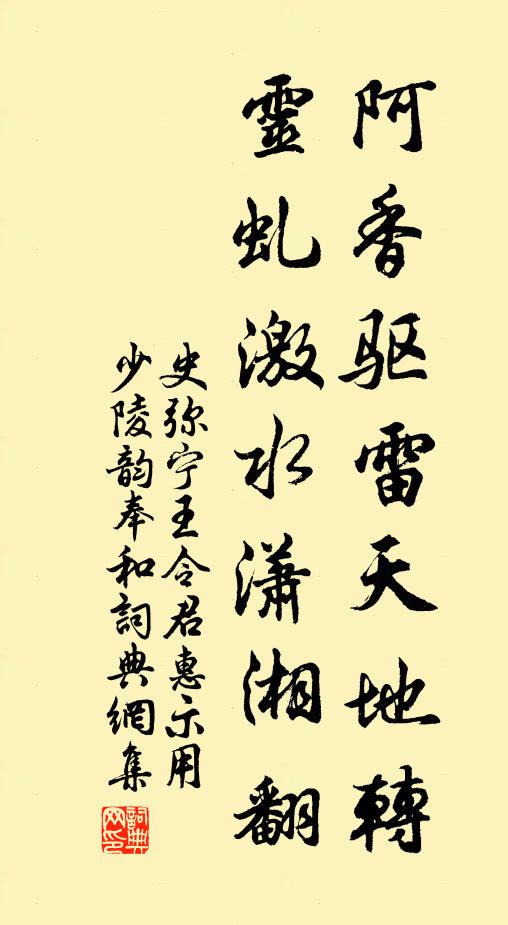 阿香驱雷天地轉
靈虬激水瀟湘翻
史弥宁王令君惠示用
少陵韵奉和詞典網集
詞典网印